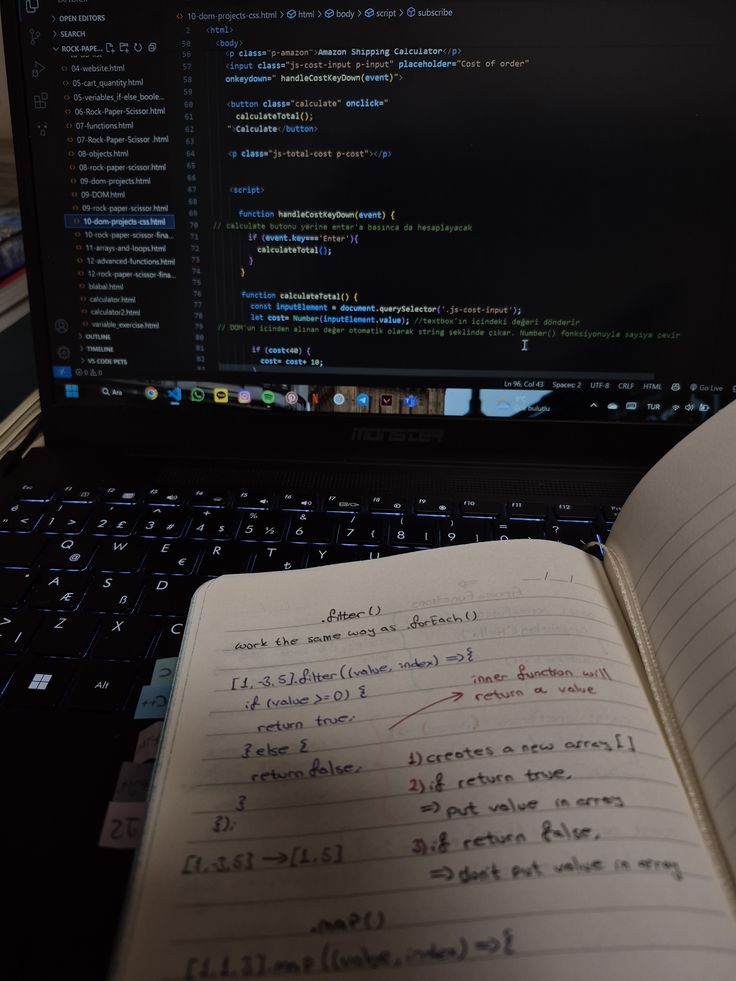 10-dom-projects-css.html > html > body > script > subscribe
OPEN EDITORS
SEARCH
ROCK-PAPE...
04-website.html
05-cart_quantity.html
05-veriables_if-else_boole...
06-Rock-Paper-Scissor.html
07-functions.html
07-Rock-Paper-Scissor .html
08-objects.html
08-rock-paper-scissor.html
09-dom-projects.html
09-DOM.html
09-rock-paper-scissor.html
10-dom-projects-css.html
10-rock-paper-scissor-fina...
11-arrays-and-loops.html
12-advanced-functions.html
12-rock-paper-scissor-fina...
blabal.html
calculator.html
calculator2.html
variable_exercise.html
OUTLINE
TIMELINE
VS CODE PETS
2 <html>
50 <body>
56 <p class="p-amazon">Amazon Shipping Calculator</p>
57 <input class="js-cost-input p-input" placeholder="Cost of order"
58 onkeydown=" handleCostKeyDown(event)">
59
60 <button class="calculate" onclick="
61 calculateTotal();
62 ">Calculate</button>
63
64 <p class="js-total-cost p-cost"></p>
65
66
67 <script>
68
69 function handleCostKeyDown(event) {
70 // calculate butonu yerine enter'a basınca da hesaplayacak
71 if (event.key==='Enter'){
72 calculateTotal();
73 }
74 }
75
76 function calculateTotal() {
77 const inputElement = document.querySelector('.js-cost-input');
78 let cost= Number(inputElement.value); //textbox'ın içindeki değeri döndürür
79 // DOM'un içinden alınan değer otomatik olarak string şeklinde çıkar. Number() fonksiyonuyla sayıya çevir
80
81 if (cost<40) {
82 cost= cost+ 10;
0 0
Ln 96, Col 43 Spaces: 2 UTF-8 CRLF HTML Go Live
Ara
bulutlu
TUR
MONSTER
Esc f1 f2 f3 f4 f5 f6 f7 f8 f9 f10 f11 f12
Q @ W E € R T ₺ Y U
A Æ S ß D
Z X C
Alt
C
C++
.filter()
work the same way as .forEach()
[1, -3, 5].filter((value, index) => {
if (value >= 0) {
return true;
} else {
return false;
}
});
[1,-3,5] → [1,5]
inner function will
return a value
1) creates a new array []
2) if return true,
=> put value in array
3) if return false,
=> don't put value in array
.map()
[1,1,3].map((value, index) => {